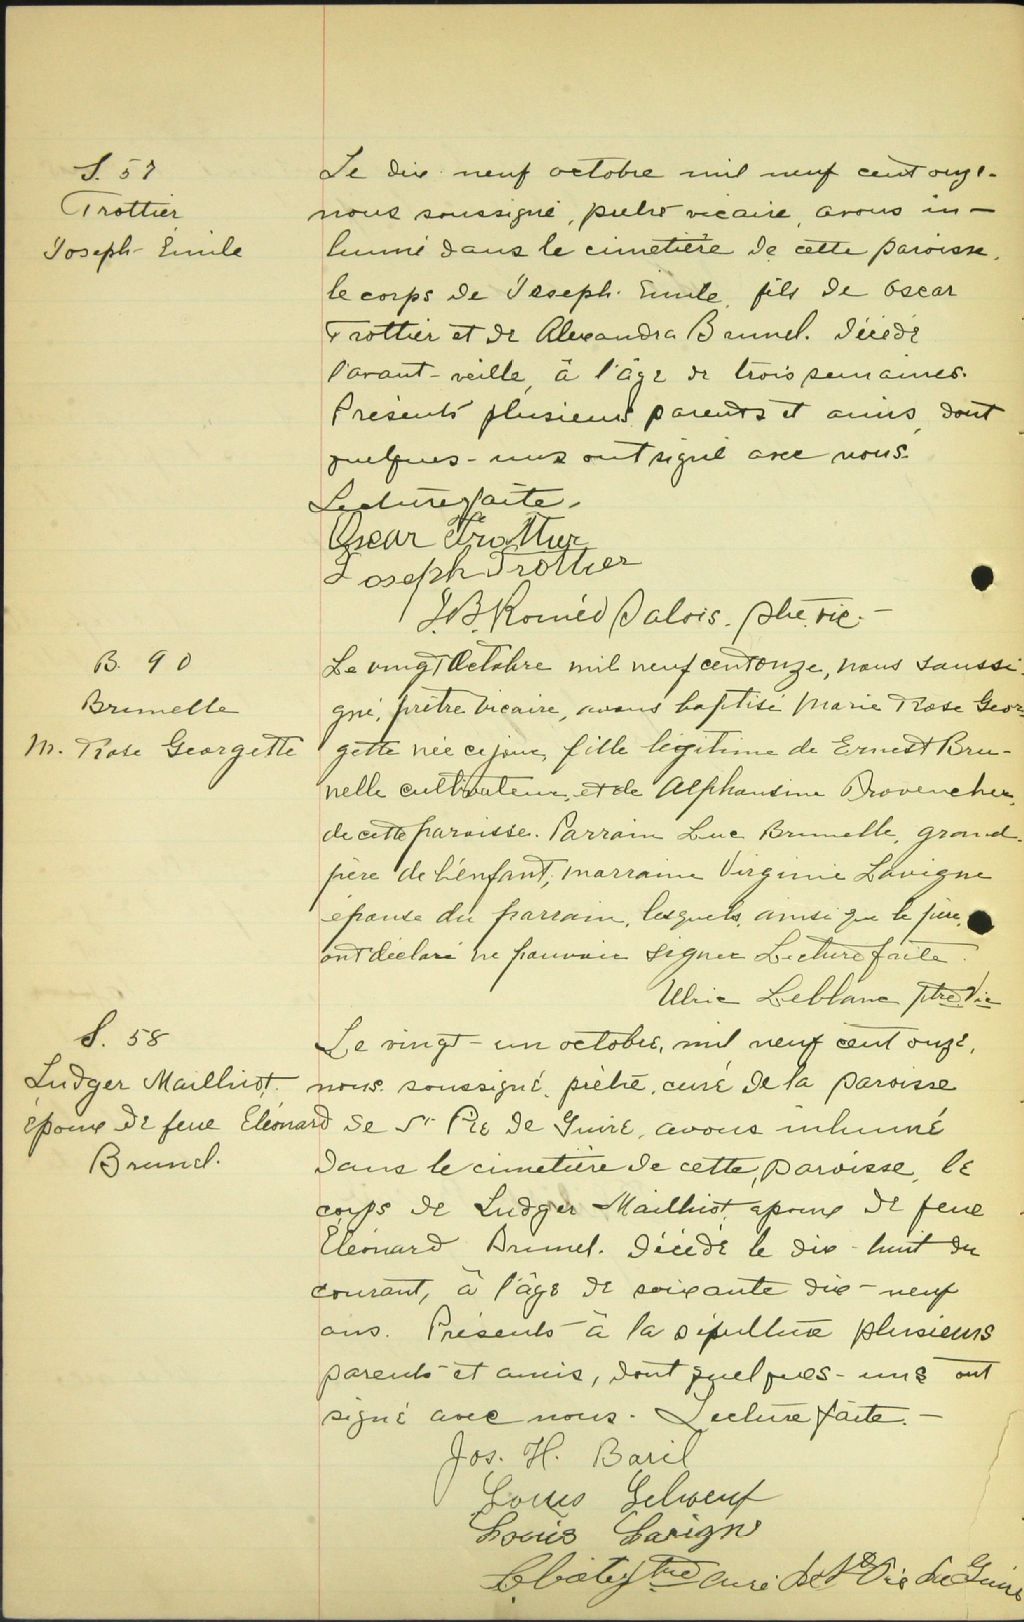 S. 57
Trottier
Joseph-Émile
Le dix-neuf octobre mil neuf cent onze.
nous soussigné, prêtre vicaire, avons in-
humé dans le cimetière de cette paroisse,
le corps de Joseph-Émile, fils de Oscar
Trottier et de Alexandra Brunel. Décédé
l'avant-veille, à l'âge de trois semaines.
Présents plusieurs parents et amis, dont
quelques-uns ont signé avec nous.
Lecture faite.
Oscar Trottier
Joseph Trottier
J.B. Roméo Salois. ptre. vic.-
B. 90
Brunelle
M. Rose Georgette
Le vingt Octobre mil neuf cent onze, nous soussi-
gné, prêtre vicaire, avons baptisé Marie Rose Geor-
gette née ce jour, fille légitime de Ernest Bru-
nelle cultivateur, et de Alphonsine Provencher,
de cette paroisse. Parrain Luc Brunelle, grand-
père de l'enfant; marraine Virginie Lavigne
épouse du parrain, lesquels, ainsi que le père,
ont déclaré ne pouvoir signer Lecture faite.
Ulric Leblanc ptre Vic
S. 58
Ludger Mailhiot
époux de feue Eléonard
Brunel.
Le vingt-un octobre, mil neuf cent onze,
nous soussigné, prêtre, curé de la paroisse
de St Pie de Guire, avons inhumé
dans le cimetière de cette paroisse, le
corps de Ludger Mailhiot, époux de feue
Eléonard Brunel. Décédé le dix-huit du
courant, à l'âge de soixante dix-neuf
ans. Présents à la sépulture plusieurs
parents et amis, dont quelques-uns ont
signé avec nous. Lecture faite.-
Jos. H. Baril
Louis
Louis Lavigne
ptre curé de St Pie de Guire